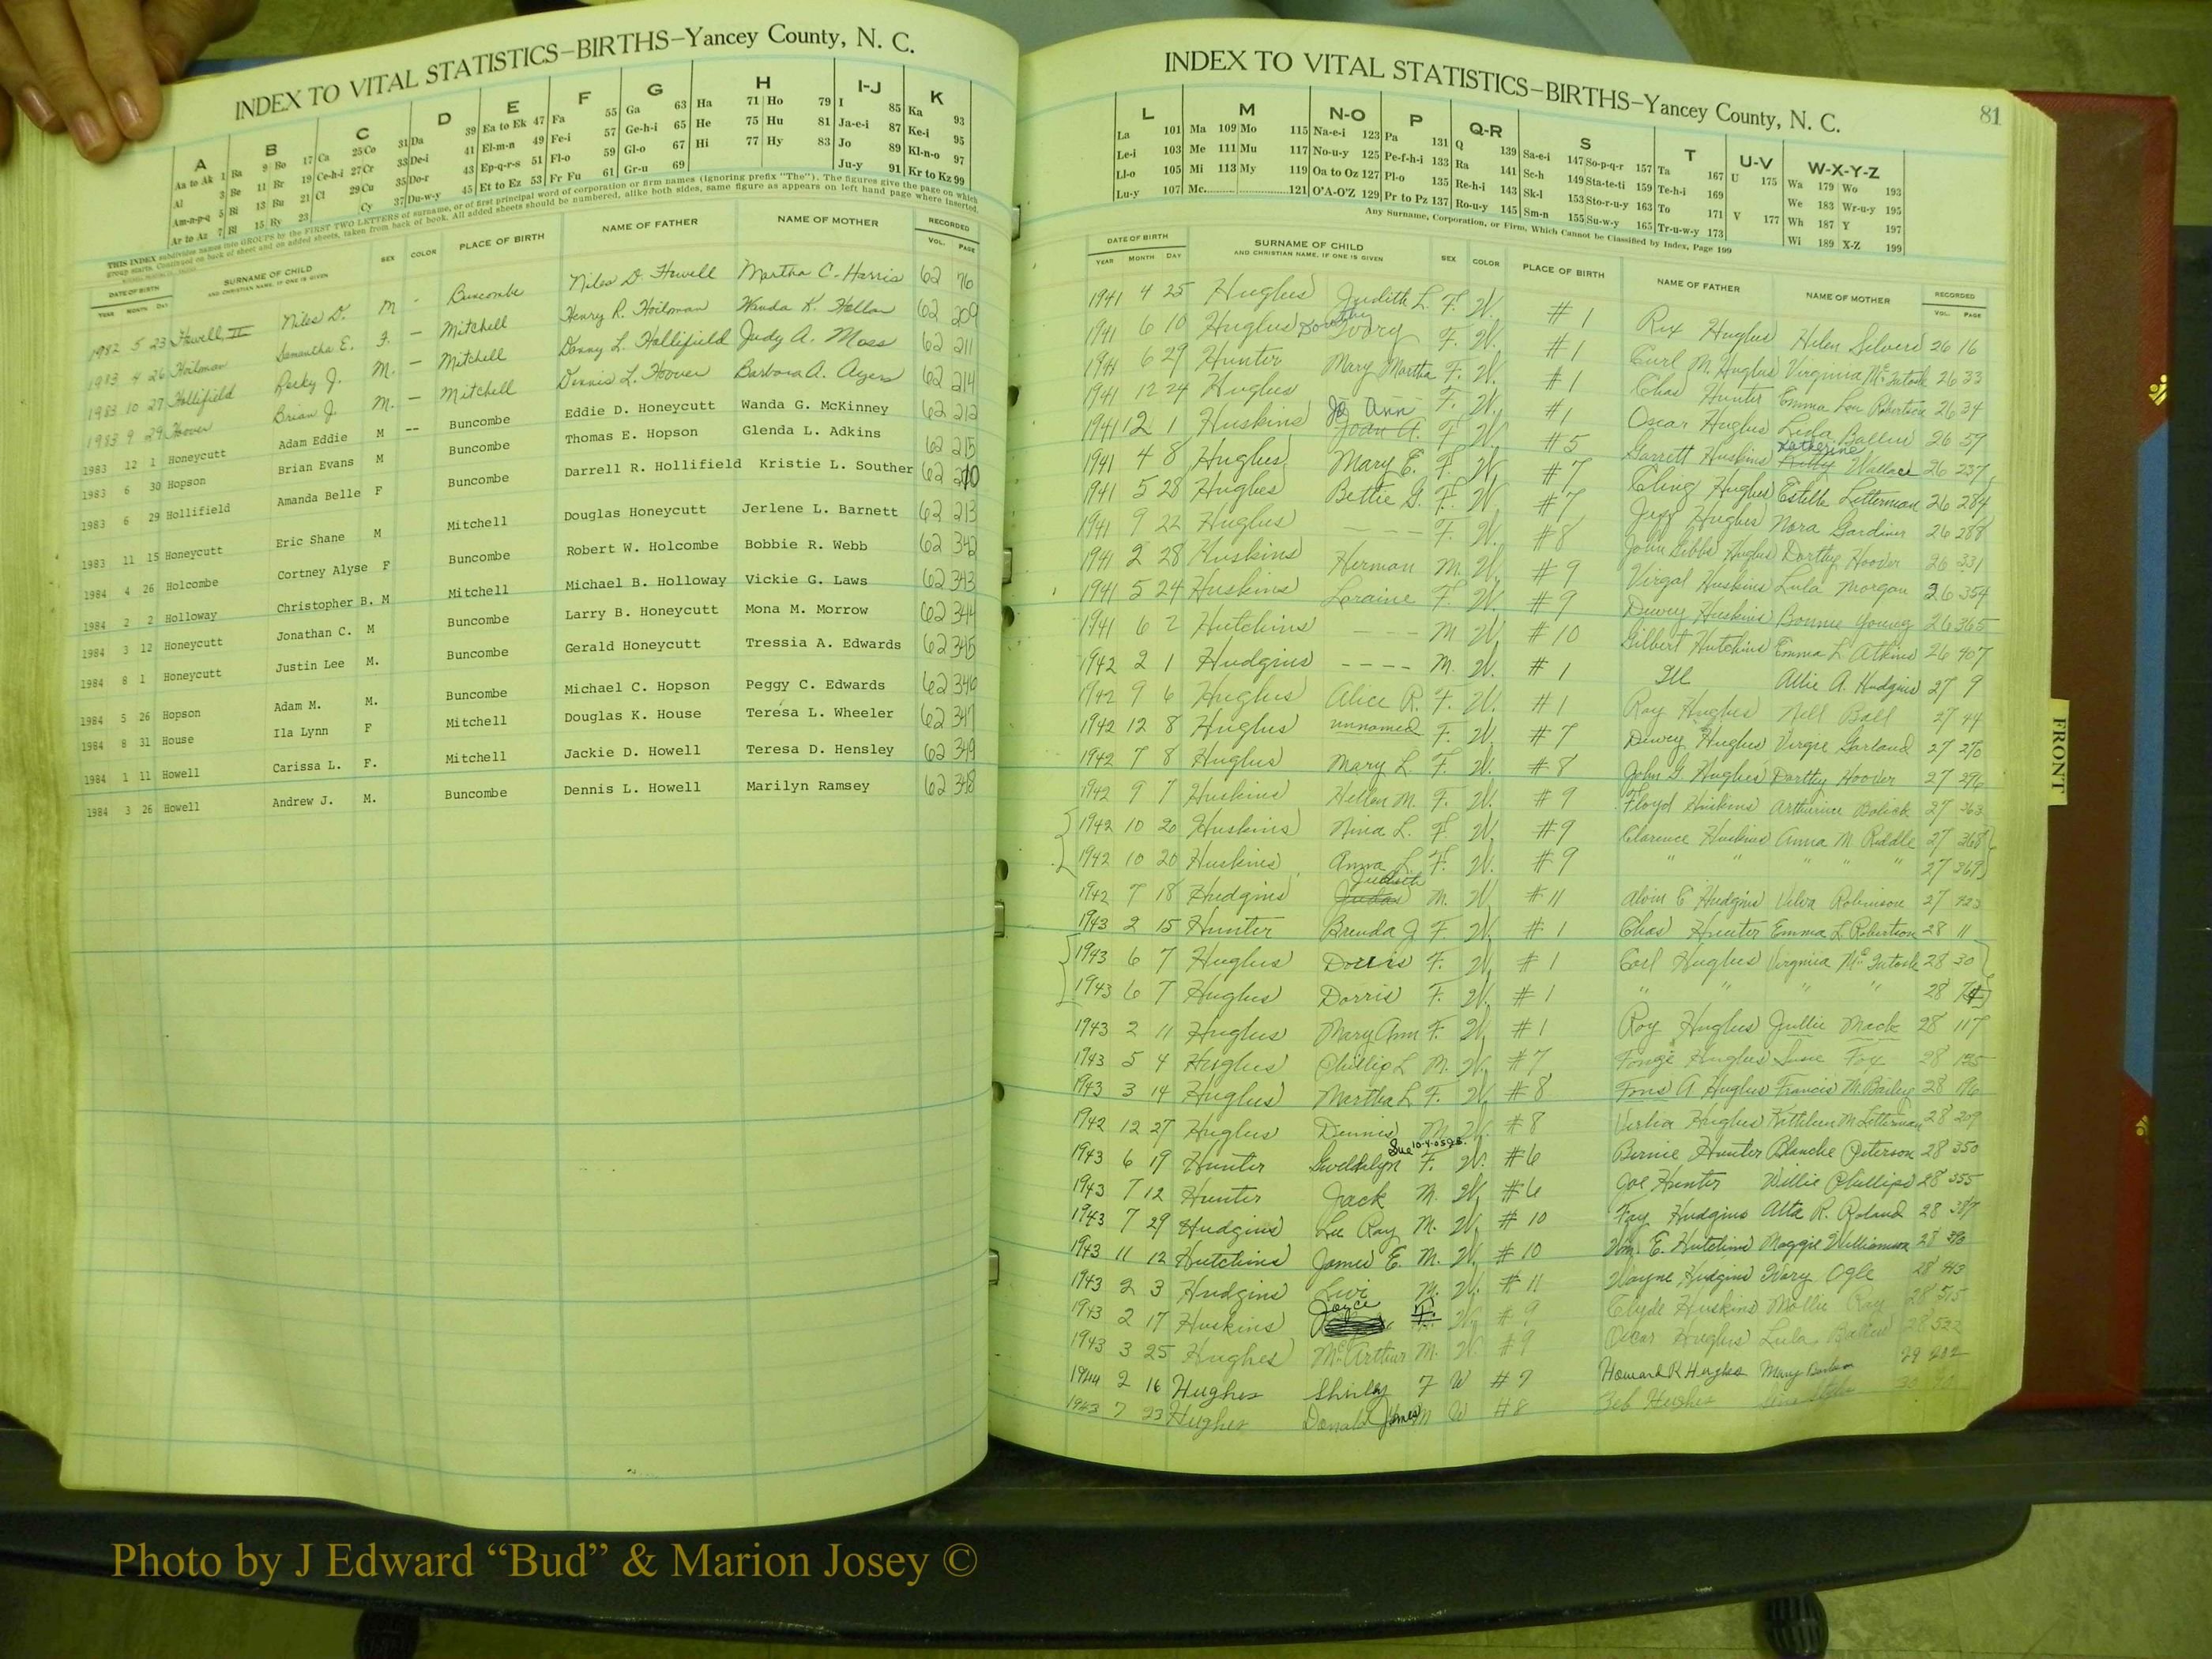 INDEX TO VITAL STATISTICS–BIRTHS–Yancey County, N. C.
A B C D E F G H I-J K
Aa to Ak 1 Ba 9 Bo 17 Ca 25 Co 31 Da 39 Ea to Ek 47 Fa 55 Ga 63 Ha 71 Ho 79 I 85 Ka 93
Al 3 Be 11 Br 19 Ce-h-i 27 Cr 33 De-i 41 El-m-n 49 Fe-i 57 Ge-h-i 65 He 75 Hu 81 Ja-e-i 87 Ke-i 95
Am-n-p-q 5 Bi 13 Bu 21 Cl 29 Cu 35 Do-r 43 Ep-q-r-s 51 Fl-o 59 Gl-o 67 Hi 77 Hy 83 Jo 89 Kl-n-o 97
Ar to Az 7 Bl 15 By 23 Cy 37 Du-w-y 45 Et to Ez 53 Fr Fu 61 Gr-u 69 Ju-y 91 Kr to Kz 99
THIS INDEX subdivides names into GROUPS by the FIRST TWO LETTERS of surname, or of first principal word of corporation or firm names (ignoring prefix "The"). The figures give the page on which
group starts. Continued on back of sheet and on added sheets, taken from back of book. All added sheets should be numbered, alike both sides, same figure as appears on left hand page where inserted.
DATE OF BIRTH SURNAME OF CHILD SEX COLOR PLACE OF BIRTH NAME OF FATHER NAME OF MOTHER RECORDED
YEAR MONTH DAY AND CHRISTIAN NAME, IF ONE IS GIVEN VOL. PAGE
1982 5 23 Howell, II Niles D. M - Buncombe Niles D. Howell Martha C. Harris 62 76
1983 4 26 Hoilman Samantha E. F. - Mitchell Henry R. Hoilman Wanda K. 62 209
1983 10 27 Hollifield Ricky J. M. - Mitchell Danny L. Hollifield Judy A. Moss 62 211
1983 9 29 Hoover Brian J. M. - Mitchell Dennis L. Hoover Barbara A. Ayers 62 214
1983 12 1 Honeycutt Adam Eddie M -- Buncombe Eddie D. Honeycutt Wanda G. McKinney 62 212
1983 6 30 Hopson Brian Evans M Buncombe Thomas E. Hopson Glenda L. Adkins 62 215
1983 6 29 Hollifield Amanda Belle F Buncombe Darrell R. Hollifield Kristie L. Souther 62 210
1983 11 15 Honeycutt Eric Shane M Mitchell Douglas Honeycutt Jerlene L. Barnett 62 213
1984 4 26 Holcombe Cortney Alyse F Buncombe Robert W. Holcombe Bobbie R. Webb 62 342
1984 2 2 Holloway Christopher B. M Mitchell Michael B. Holloway Vickie G. Laws 62 343
1984 3 12 Honeycutt Jonathan C. M Buncombe Larry B. Honeycutt Mona M. Morrow 62 344
1984 8 1 Honeycutt Justin Lee M. Buncombe Gerald Honeycutt Tressia A. Edwards 62 345
1984 5 26 Hopson Adam M. M. Buncombe Michael C. Hopson Peggy C. Edwards 62 346
1984 8 31 House Ila Lynn F Mitchell Douglas K. House Teresa L. Wheeler 62 347
1984 1 11 Howell Carissa L. F. Mitchell Jackie D. Howell Teresa D. Hensley 62 349
1984 3 26 Howell Andrew J. M. Buncombe Dennis L. Howell Marilyn Ramsey 62 348
INDEX TO VITAL STATISTICS–BIRTHS–Yancey County, N. C. 81
L M N-O P Q-R S T U-V W-X-Y-Z
La 101 Ma 109 Mo 115 Na-e-i 123 Pa 131 Q 139 Sa-e-i 147 So-p-q-r 157 Ta 167 U 175 Wa 179 Wo 193
Le-i 103 Me 111 Mu 117 No-u-y 125 Pe-f-h-i 133 Ra 141 Sc-h 149 Sta-te-ti 159 Te-h-i 169 We 183 Wr-u-y 195
Ll-o 105 Mi 113 My 119 Oa to Oz 127 Pl-o 135 Re-h-i 143 Sk-l 153 Sto-r-u-y 163 To 171 V 177 Wh 187 Y 197
Lu-y 107 Mc 121 O'A-O'Z 129 Pr to Pz 137 Ro-u-y 145 Sm-n 155 Su-w-y 165 Tr-u-w-y 173 Wi 189 X-Z 199
Any Surname, Corporation, or Firm, Which Cannot be Classified by Index, Page 199
DATE OF BIRTH SURNAME OF CHILD SEX COLOR PLACE OF BIRTH NAME OF FATHER NAME OF MOTHER RECORDED
YEAR MONTH DAY AND CHRISTIAN NAME, IF ONE IS GIVEN VOL. PAGE
1941 4 25 Hughes Judith L. F. W. #1 Rex Hughes Helen Silvers 26 16
1941 6 10 Hughes Dorothy Ivory F. W. #1 Curl M. Hughes Virginia McIntosh 26 33
1941 6 29 Hunter Mary Martha F. W. #1 Chas Hunter Emma Lou Robertson 26 34
1941 12 24 Hughes F. W. #1 Oscar Hughes Lula Ballew 26 59
1941 12 1 Huskins Jo Ann Joan A. F W. #5 Garrett Huskins Katherine Kitty Wallace 26 237
1941 4 8 Hughes Mary E. F. W. #7 Cling Hughes Estelle Letterman 26 284
1941 5 28 Hughes Bettie G. F. W. #7 Jeff Hughes Nora Gardner 26 288
1941 9 22 Hughes --- F. W. #8 John Gibbs Hughes Dorthy Hoover 26 331
1941 2 28 Huskins Herman M. W. #9 Virgal Huskins Lula Morgan 26 354
1941 5 24 Huskins Loraine F. W. #9 Dewey Huskins Bonnie Young 26 365
1941 6 2 Hutchins --- M W. #10 Gilbert Hutchins Emma L Atkins 26 407
1942 2 1 Hudgins ---- M. W. #1 Ill Allie A. Hudgins 27 9
1942 9 6 Hughes Alice R. F. W. #1 Roy Hughes Nell Ball 27 44
1942 12 8 Hughes unnamed F. W. #7 Dewey Hughes Virgie Garland 27 270
1942 7 8 Hughes Mary L. F. W. #8 John G Hughes Dorthy Hoover 27 296
1942 9 7 Huskins Hellen M. F. W. #9 Floyd Huskins 27 363
1942 10 20 Huskins Nina L. F. W. #9 Clarence Huskins Anna M Riddle 27 368
1942 10 20 Huskins Anna L. F. W. #9 " " " " " 27 369
1942 7 18 Hudgins Judith M. W #11 Alvin E Hudgins Velva Robinson 27 423
1943 2 15 Hunter Brenda J F. W. #1 Chas Hunter Emma L Robertson 28 11
1943 6 7 Hughes F. W. #1 Hughes Virginia McIntosh 28 30
1943 6 7 Hughes Dorris F. W. #1 " " " " 28
1943 2 11 Hughes Mary Ann F. W. #1 Roy Hughes Jullie Mack 28 117
1943 5 4 Hughes Phillip L M. W. #7 Hughes Susie Fox 28
1943 3 14 Hughes Martha L F. W. #8 A Hughes Francis M. Bailey 28 196
1942 12 27 Hughes Dennis M. W. #8 Hughes Kathleen M Letterman 28 209
1943 6 19 Hunter Sue 10-4-05 F. W. #6 Bernie Hunter Blanche Peterson 28 350
1943 7 12 Hunter Jack M. W. #6 Joe Hunter Willie Phillips 28 355
1943 7 29 Hudgins Lee Roy M. W. #10 Fay Hudgins Alta R. Roland 28 387
1943 11 12 Hutchins James E. M. W. #10 Wm. E. Hutchins Maggie Williamson 28
1943 2 3 Hudgins Levi M. W. #11 Wayne Hudgins Ivory Ogle 28 443
1943 2 17 Huskins Joyce F. W. #9 Clyde Huskins Mollie Ray 28 515
1943 3 25 Hughes McArthur M. W. #9 Oscar Hughes Lula Ballew 28 522
1944 2 16 Hughes Shirley F W #7 Howard R Hughes Mary 29 202
1943 7 23 Hughes Donald James M W #8 Zeb Hughes
FRONT
Photo by J Edward “Bud” & Marion Josey ©